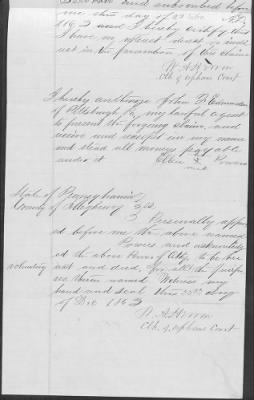 me this day of
1863 and I hereby certify that
I have no interest direct or indi
rect in the prosecution of this claim
W. A. Herron
Clk of orphans Court
I hereby authorize John B Edmundson
of Pittsburgh Pa my lawful agent
to present the foregoing claim, and
receive and receipt in my name
and stead all moneys payable
under it
Ellen X Powers
mark
State of Pennsylvania
County of Allegheny SS
Personally appea
red before me the above named
Powers and acknowledg
ed the above Power of Atty. to be her
voluntary act and deed, for all the purpo
ses therein named Witness my
hand and seal this day
of Dec 1863
W. A. Herron
Clk. of orphans Court